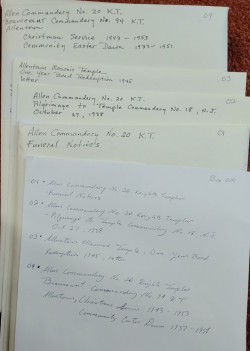 Allen Commandery No. 20 K.T.
04
Beauceant Commandery No. 94 K.T.
Allentown
Christmas Service 1943 - 1953
Community Easter Dawn 1937 - 1951
Allentown Masonic Temple
One Year Bond Redemption 1945
letter
03
Allen Commandery No. 20 K.T.
02
Pilgrimage to Temple Commandery No. 18, N.J.
October 27, 1938
Allen Commandery No. 20 K.T.
01
Funeral Notices
Box
01 - Allen Commandery No 20 Knights Templar
Funeral Notices
02 - Allen Commandery No. 20 Knights Templar
Pilgrimage to Temple Commandery No 18 N.J.
Oct 27 - 1938
03 - Allentown Masonic Temple, One Year Bond
Redemption 1945, letter
04 - Allen Commandery No 20 Knights Templar
Commandery No 94 K.T.
Christmas 1943 - 1953
Community Easter Dawn 1937 -